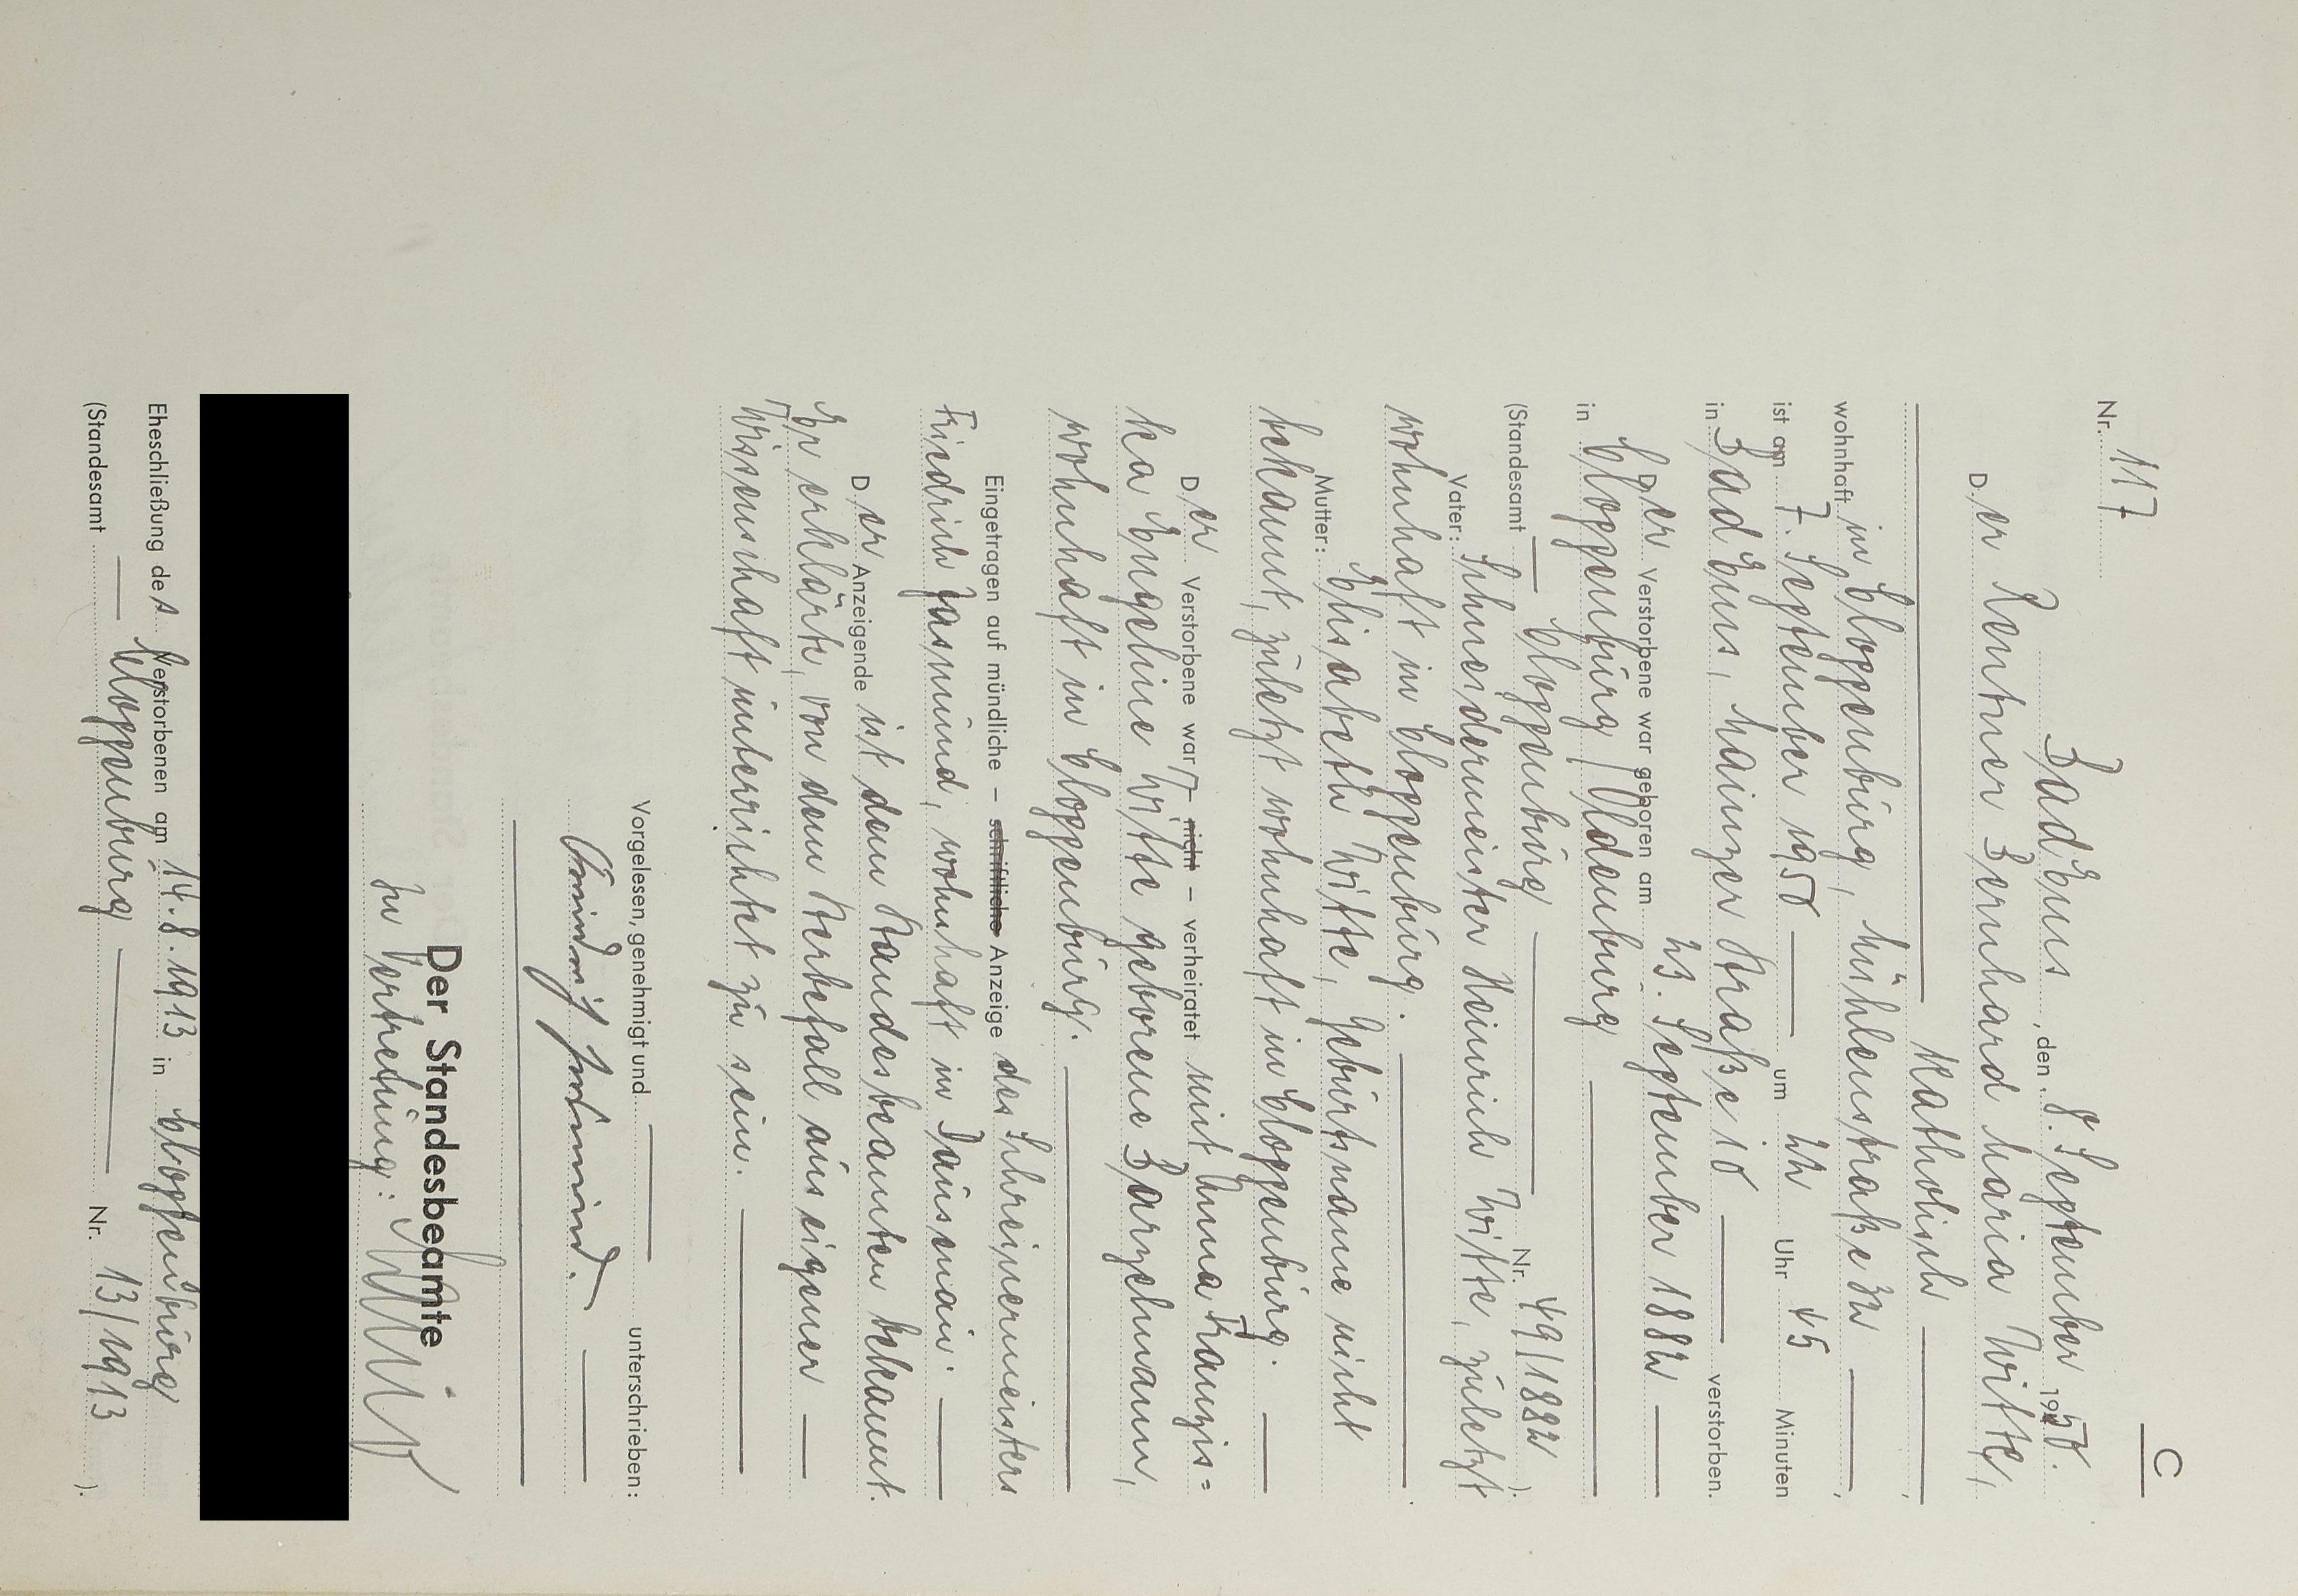 C
Nr. 117
Bad Ems, den 8. September 1950.
Der Rentner Bernhard Maria Witte,
Katholisch,
wohnhaft in Cloppenburg, Mühlenstraße 32,
ist am 7. September 1950 um 22 Uhr 45 Minuten
in Bad Ems, Mainzer Straße 10 verstorben.
Der Verstorbene war geboren am 23. September 1882
in Cloppenburg / Oldenburg
(Standesamt Cloppenburg Nr. 49/1882).
Vater: Schneidermeister Heinrich Witte, zuletzt
wohnhaft in Cloppenburg.
Mutter: Elisabeth Witte, Geburtsname nicht
bekannt, zuletzt wohnhaft in Cloppenburg.
Der Verstorbene war – nicht – verheiratet mit Anna Franzis=
ka Eugeline Witte geborene Barzehmann,
wohnhaft in Cloppenburg.
Eingetragen auf mündliche – schriftliche Anzeige des Schreinermeisters
Friedrich Jasmund, wohnhaft in Dausenau.
Der Anzeigende ist dem Standesbeamten bekannt.
Er erklärte, von dem Sterbefall aus eigener
Wissenschaft unterrichtet zu sein.
Vorgelesen, genehmigt und unterschrieben:
Friedrich Jasmund.
Der Standesbeamte
In Vertretung:
Eheschließung des Verstorbenen am 14.8.1913 in Cloppenburg
(Standesamt Cloppenburg Nr. 13/1913).